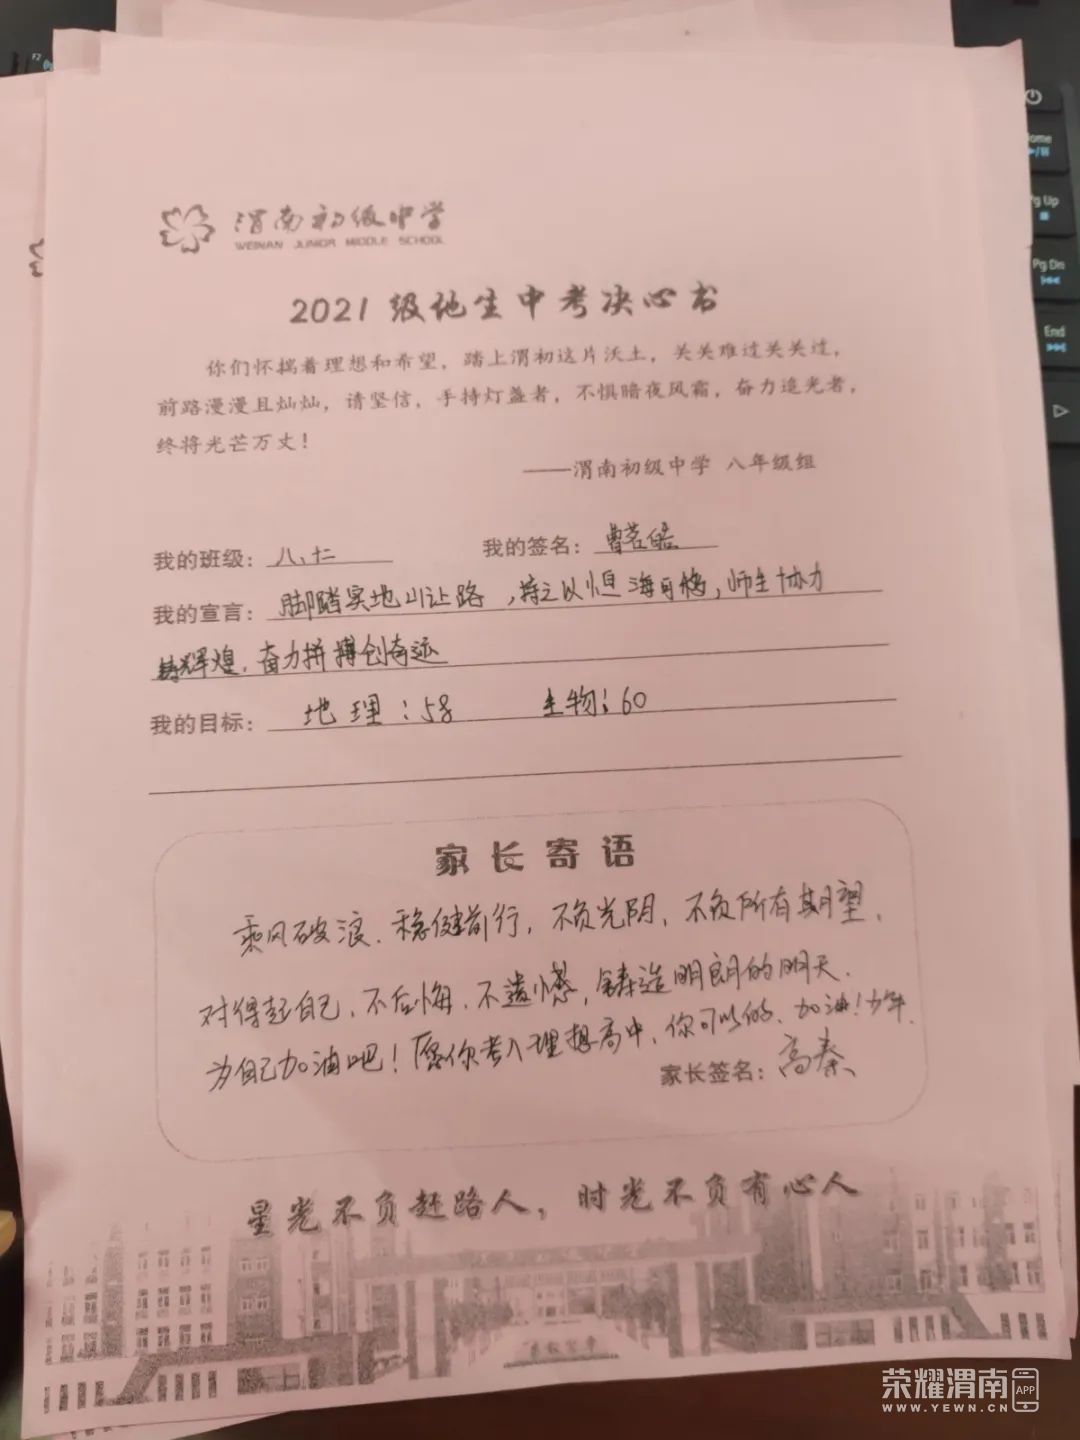 渭南初级中学
WEINAN JUNIOR MIDDLE SCHOOL
2021级地生中考决心书
你们怀揣着理想和希望，踏上渭初这片沃土，关关难过关关过，
前路漫漫且灿灿，请坚信，手持灯盏者，不惧暗夜风霜，奋力追光者，
终将光芒万丈！
——渭南初级中学 八年级组
我的班级：八、仁 我的签名：曹茗皓
我的宣言：脚踏实地山让路，持之以恒海可移，师生协力
铸辉煌，奋力拼搏创奇迹
我的目标：地理：58 生物：60
家长寄语
乘风破浪、稳健前行，不负光阴，不负所有期望，
对得起自己，不后悔，不遗憾，铸造明朗的明天，
为自己加油吧！愿你考入理想高中，你可以的、加油！少年.
家长签名：高秦
星光不负赶路人，时光不负有心人
荣耀渭南 APP
WWW.YEWN.CN
F2
Home
Pg Up
Pg Dn
End